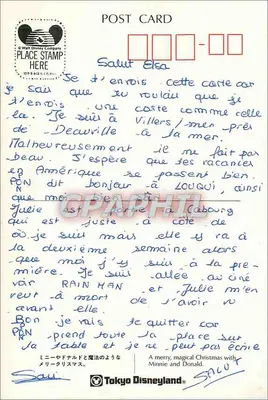 POST CARD
© Walt Disney Company
PLACE STAMP
HERE
Salut Elsa
Je t'envois cette carte car
je sais que tu voulais que je
t'envois une carte comme celle
la. Je suis à Villers/mer près
de Deauville à la mer.
Malheureusement il ne fait pas
beau. J'espère que tes vacances
en Amérique se passent bien.
PON dit bonjour à LOUQUI, ainsi
que moi
Julie est à Cabourg
qui est juste à côté de
où je suis mais elle y va à
la deuxième semaine alors
que moi j'y suis à la pre-
mière. Je suis allée au ciné
voir RAIN MAN et Julie m'en
veut à mort de l'avoir vu
avant elle.
Bon je vais te quitter car
PON prend toute la place sur
la table et je ne peut pas écrire
ミニーやドナルドと魔法のような
メリークリスマス。
A merry, magical Christmas with
Minnie and Donald.
Tokyo Disneyland
SALUT